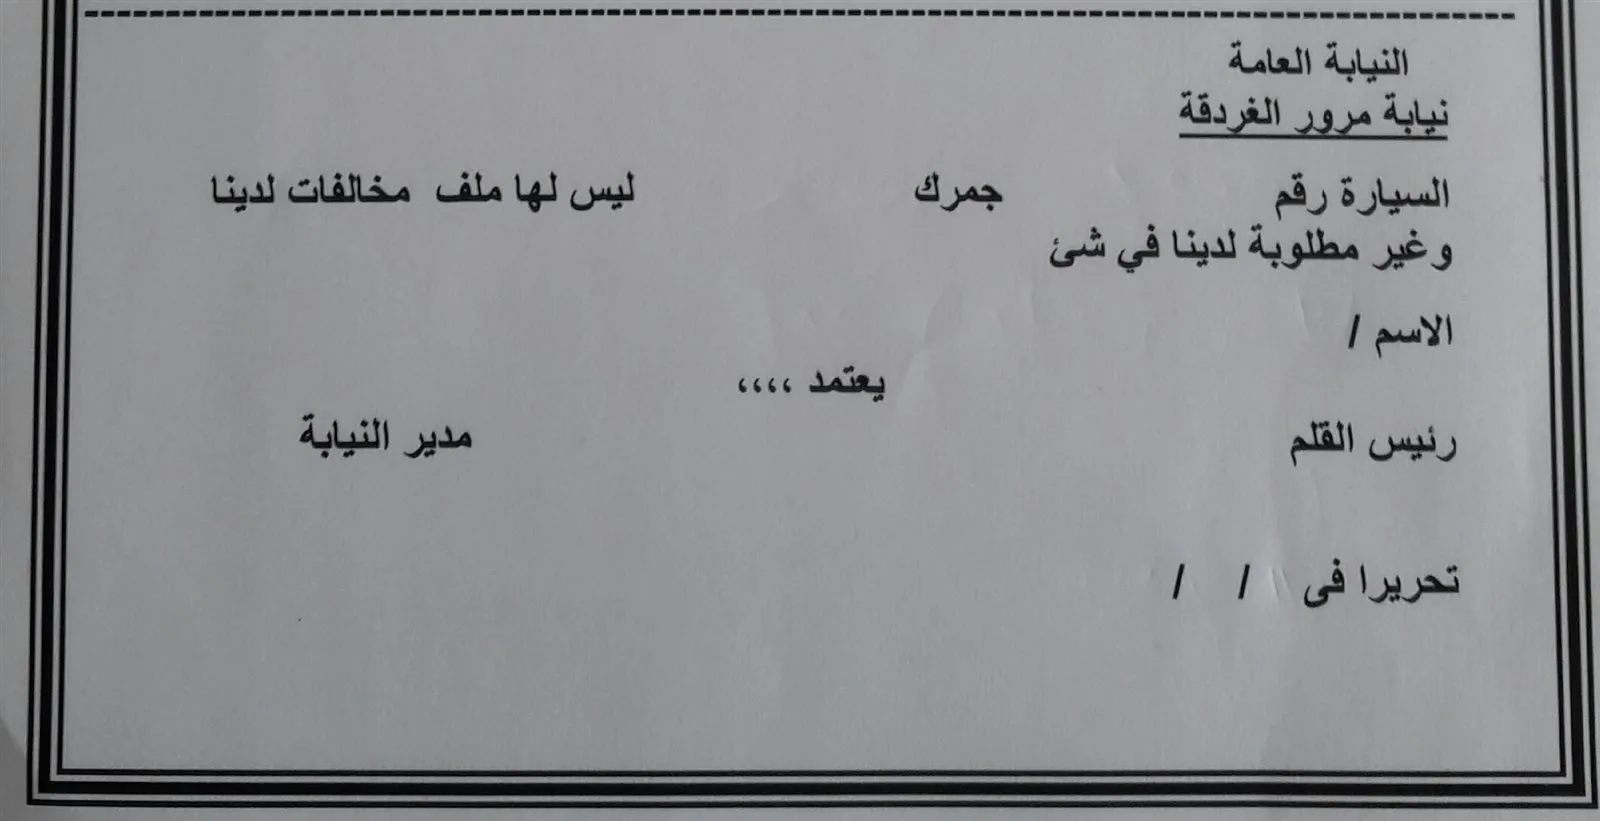 النيابة العامة
نيابة مرور الغردقة
السيارة رقم جمرك ليس لها ملف مخالفات لدينا
وغير مطلوبة لدينا في شئ
الاسم /
يعتمد ،،،،
رئيس القلم مدير النيابة
تحريرا فى / /